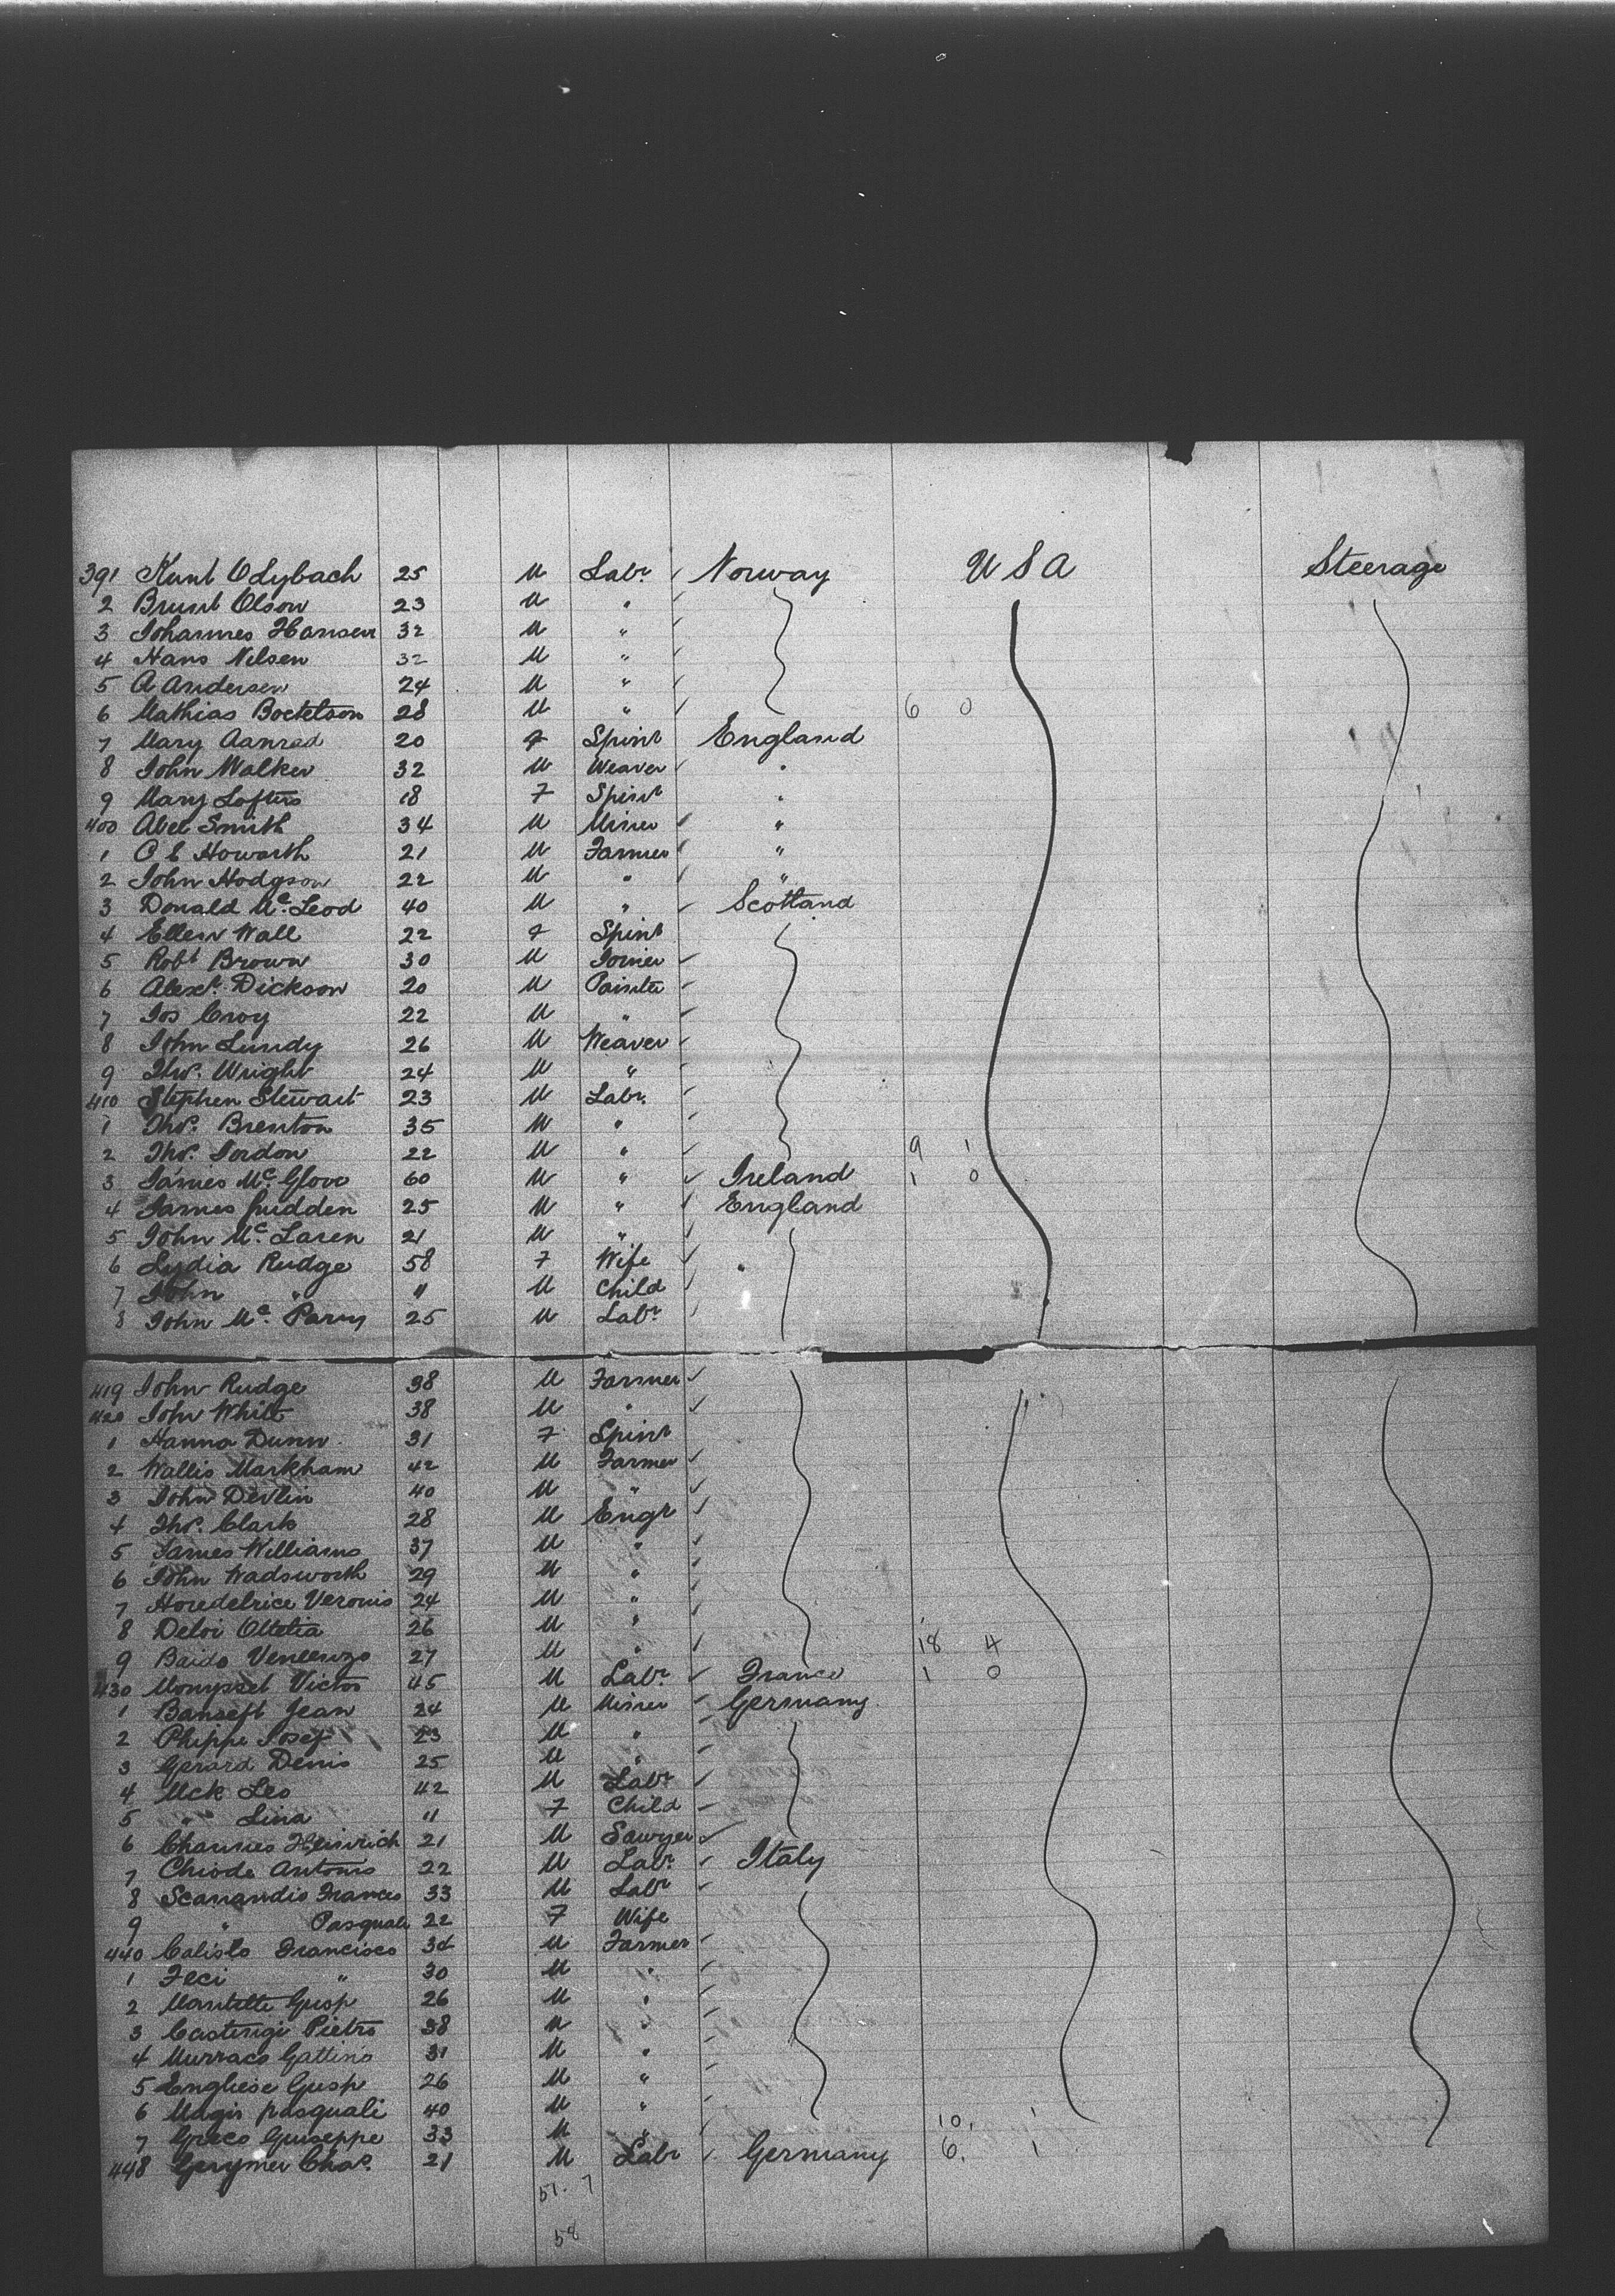 391 Kunt Odybach 25 M Labr Norway USA Steerage
2 Brunt Olson 23 M "
3 Johannes Hansen 32 M "
4 Hans Nilsen 32 M "
5 A Andersen 24 M "
6 Mathias Boetelson 28 M " 6 0
7 Mary Aanrad 20 F Spinr England
8 John Walker 32 M Weaver "
9 Mary Loftus 18 F Spinr "
400 Abel Smith 34 M Miner "
1 C E Howarth 21 M Farmer "
2 John Hodgson 22 M " "
3 Donald Mc Leod 40 M " Scotland
4 Ellen Wall 22 F Spinr
5 Robt Brown 30 M Joiner
6 Alexr Dickson 20 M Painter
7 Jos Croy 22 M "
8 John Lundy 26 M Weaver
9 Thos. Wright 24 M "
410 Stephen Stewart 23 M Labr.
1 Thos. Brenton 35 M "
2 Thos. Gordon 22 M " 9 1
3 James Mc Glove 60 M " Ireland 1 0
4 James Gudden 25 M " England
5 John Mc Laren 21 M "
6 Lydia Rudge 58 F Wife
7 John " 11 M Child
8 John Mc Parry 25 M Labr
419 John Rudge 38 M Farmer
420 John Whilt 38 M "
1 Hanna Dunn 31 F Spinr
2 Wallis Markham 42 M Farmer
3 John Devlin 40 M "
4 Thos. Clark 28 M Engr
5 James Williams 37 M "
6 John Wadsworth 29 M "
7 Horedelrice Veronis 24 M "
8 Deloi Ottelia 26 M "
9 Baido Vencenzo 27 M " 18 4
430 Monysset Victor 45 M Labr. France 1 0
1 Banseft Jean 24 M Miner Germany
2 Phippe Josef 23 M "
3 Gerard Denis 25 M "
4 Uck Leo 42 M Labr
5 " Lina 11 F Child
6 Charries Heinrich 21 M Sawyer
7 Chiode Antonis 22 M Labr. Italy
8 Scanandio Frances 33 M Labr
9 " Pasquali 22 F Wife
440 Calisto Francisco 34 M Farmer
1 Feci " 30 M "
2 Mantette Gusp 26 M "
3 Castingi Pietro 38 M "
4 Murraco Gattino 31 M "
5 Engliese Gusp 26 M "
6 Magis pasquali 40 M "
7 Greco Guiseppe 33 M " 10. 1
448 Gerymer Chas. 21 M Labr Germany 6. 1
51. 7
58